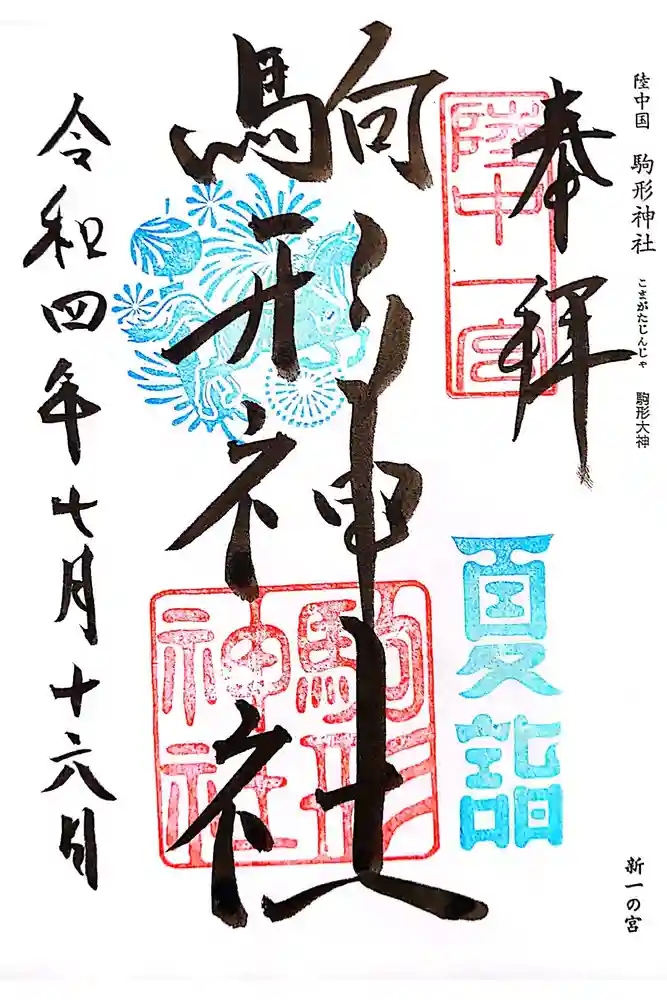 陸中国 駒形神社 こまがたじんじゃ 駒形大神
新一の宮
奉拝
陸中一宮
夏詣
駒形神社
駒形神社
令和四年七月十六日